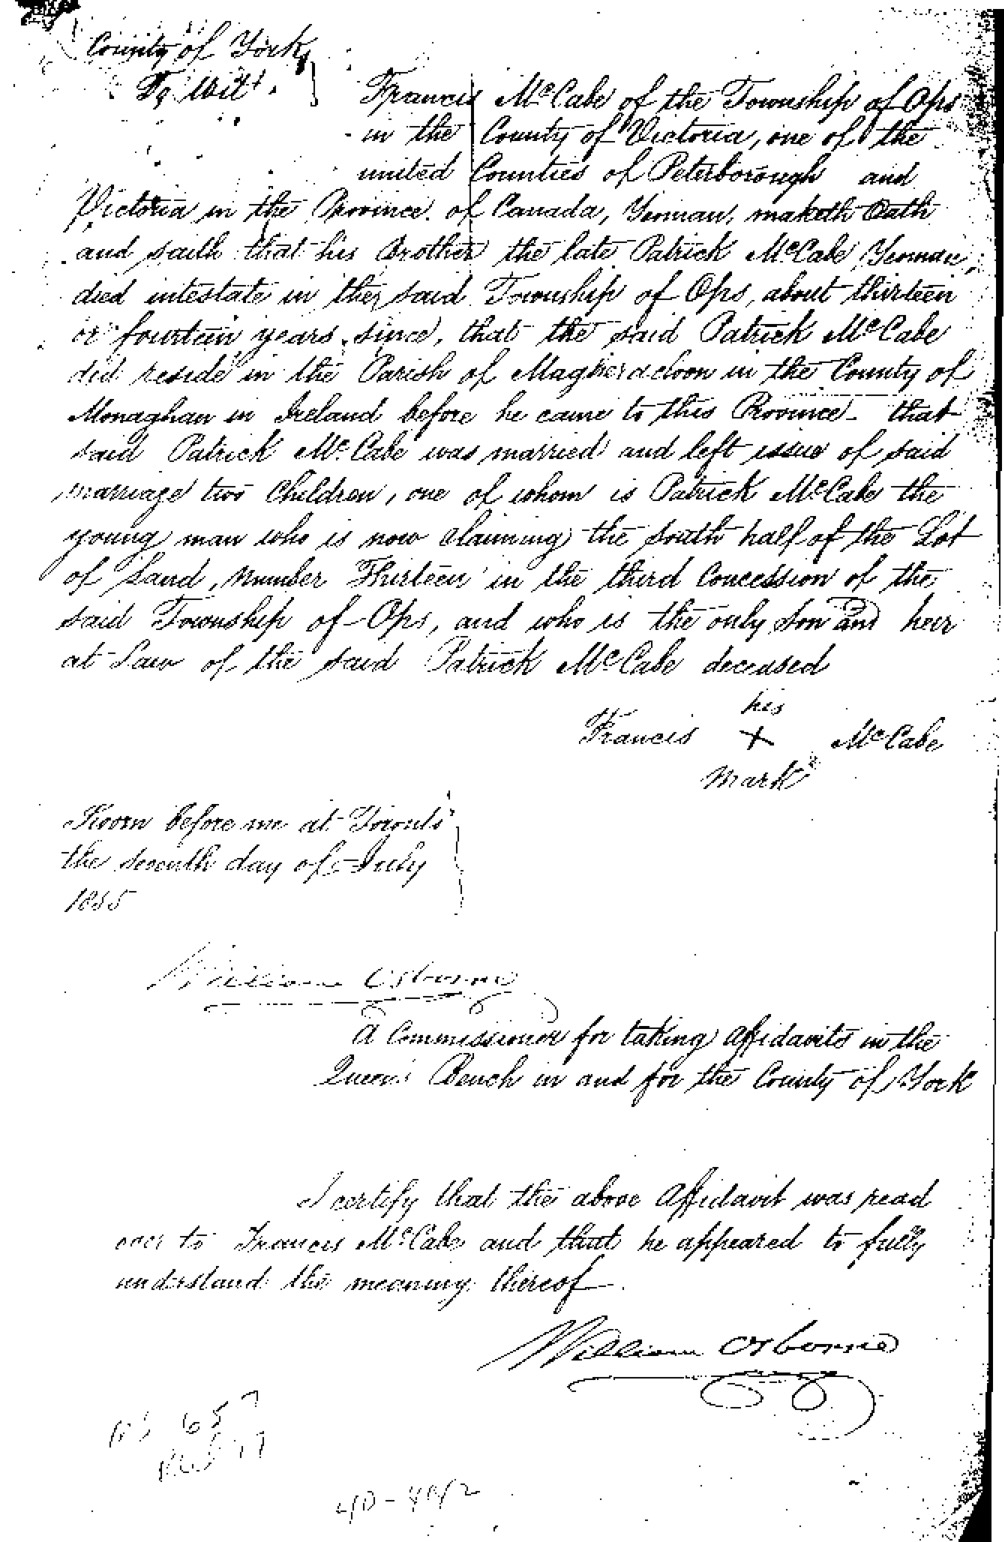 County of York,
To Wit.
Francis McCabe of the Township of Ops
in the County of Victoria, one of the
united Counties of Peterborough and
Victoria in the Province of Canada, Yeoman, maketh Oath
and saith that his Brother the late Patrick McCabe, Yeoman,
died intestate in the said Township of Ops, about thirteen
or fourteen years since, that the said Patrick McCabe
did reside in the Parish of Magheracloon in the County of
Monaghan in Ireland before he came to this Province - that
said Patrick McCabe was married and left issue of said
marriage two Children, one of whom is Patrick McCabe the
young man who is now claiming the South half of the Lot
of Land, Number Thirteen in the third Concession of the
said Township of Ops, and who is the only Son and heir
at Law of the said Patrick McCabe deceased
his
Francis X McCabe
mark
Sworn before me at Toronto
the seventh day of July
1855
William Osborne
A Commissioner for taking Affidavits in the
Queen's Bench in and for the County of York
I certify that the above Affidavit was read
over to Francis McCabe and that he appeared to fully
understand the meaning thereof.
William Osborne